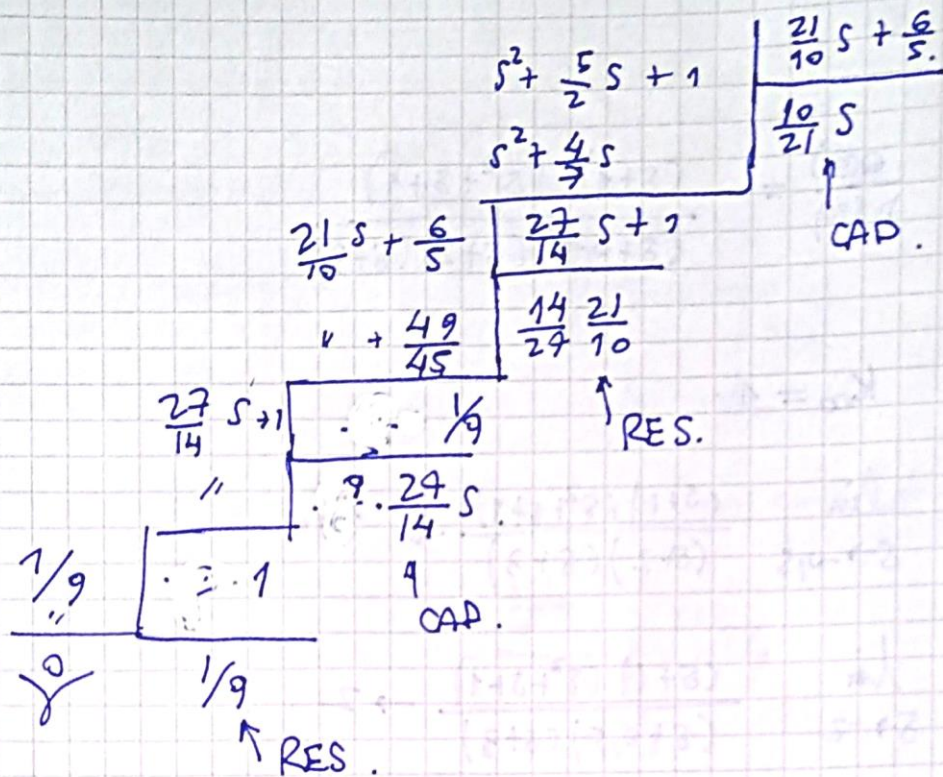 s² + 5/2 s + 1 | 21/10 s + 6/5.
s² + 4/7 s | 10/21 s
↑ CAP.
21/10 s + 6/5 | 27/14 s + 1
" + 49/45 | 14/27 21/10
↑ RES.
27/14 s + 1 | 1/9
" | 9 · 27/14 s
↑ CAP.
1/9 | 1
"
0 1/9
↑ RES.